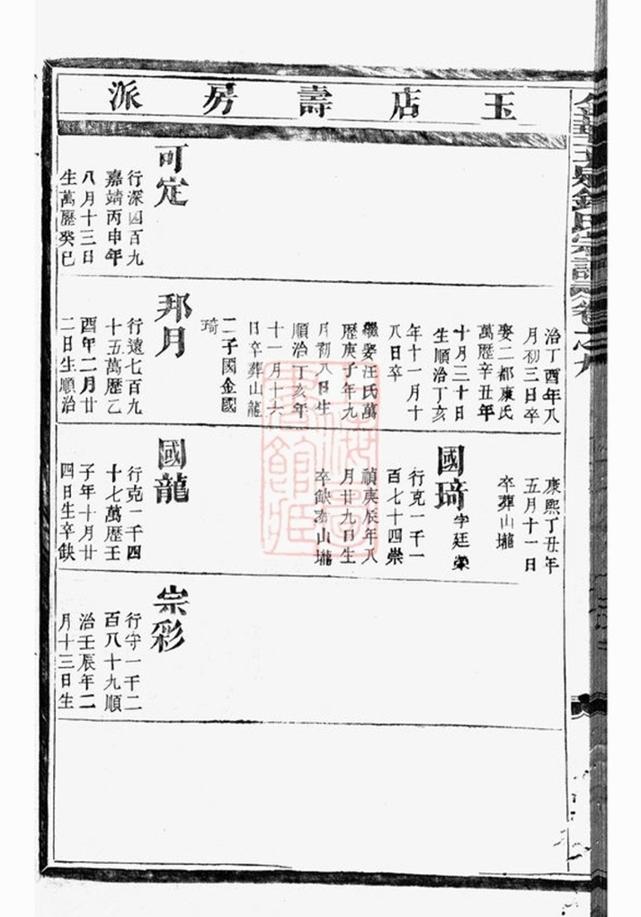 玉店壽房派
可定
行深四百九
嘉靖丙申年
八月十三日
生萬歷癸巳
治丁酉年八
月初三日卒
娶二都康氏
萬歷辛丑年
十月三十日
生順治丁亥
年十一月十
八日卒
繼娶汪氏萬
歷庚子年九
月初八日生
順治丁亥年
十一月十六
日卒葬山龍
二子國金國
琦
邦月
行遠七百九
十五萬歷乙
酉年二月廿
二日生順治
康熙丁丑年
五月十一日
卒葬山壠
國琦字廷榮
行克一千一
百七十四崇
禎庚辰年八
月廿九日生
卒缺葬山壠
國龍
行克一千四
十七萬歷壬
子年十月廿
四日生卒缺
宗彩
行守一千二
百八十九順
治壬辰年二
月十三日生